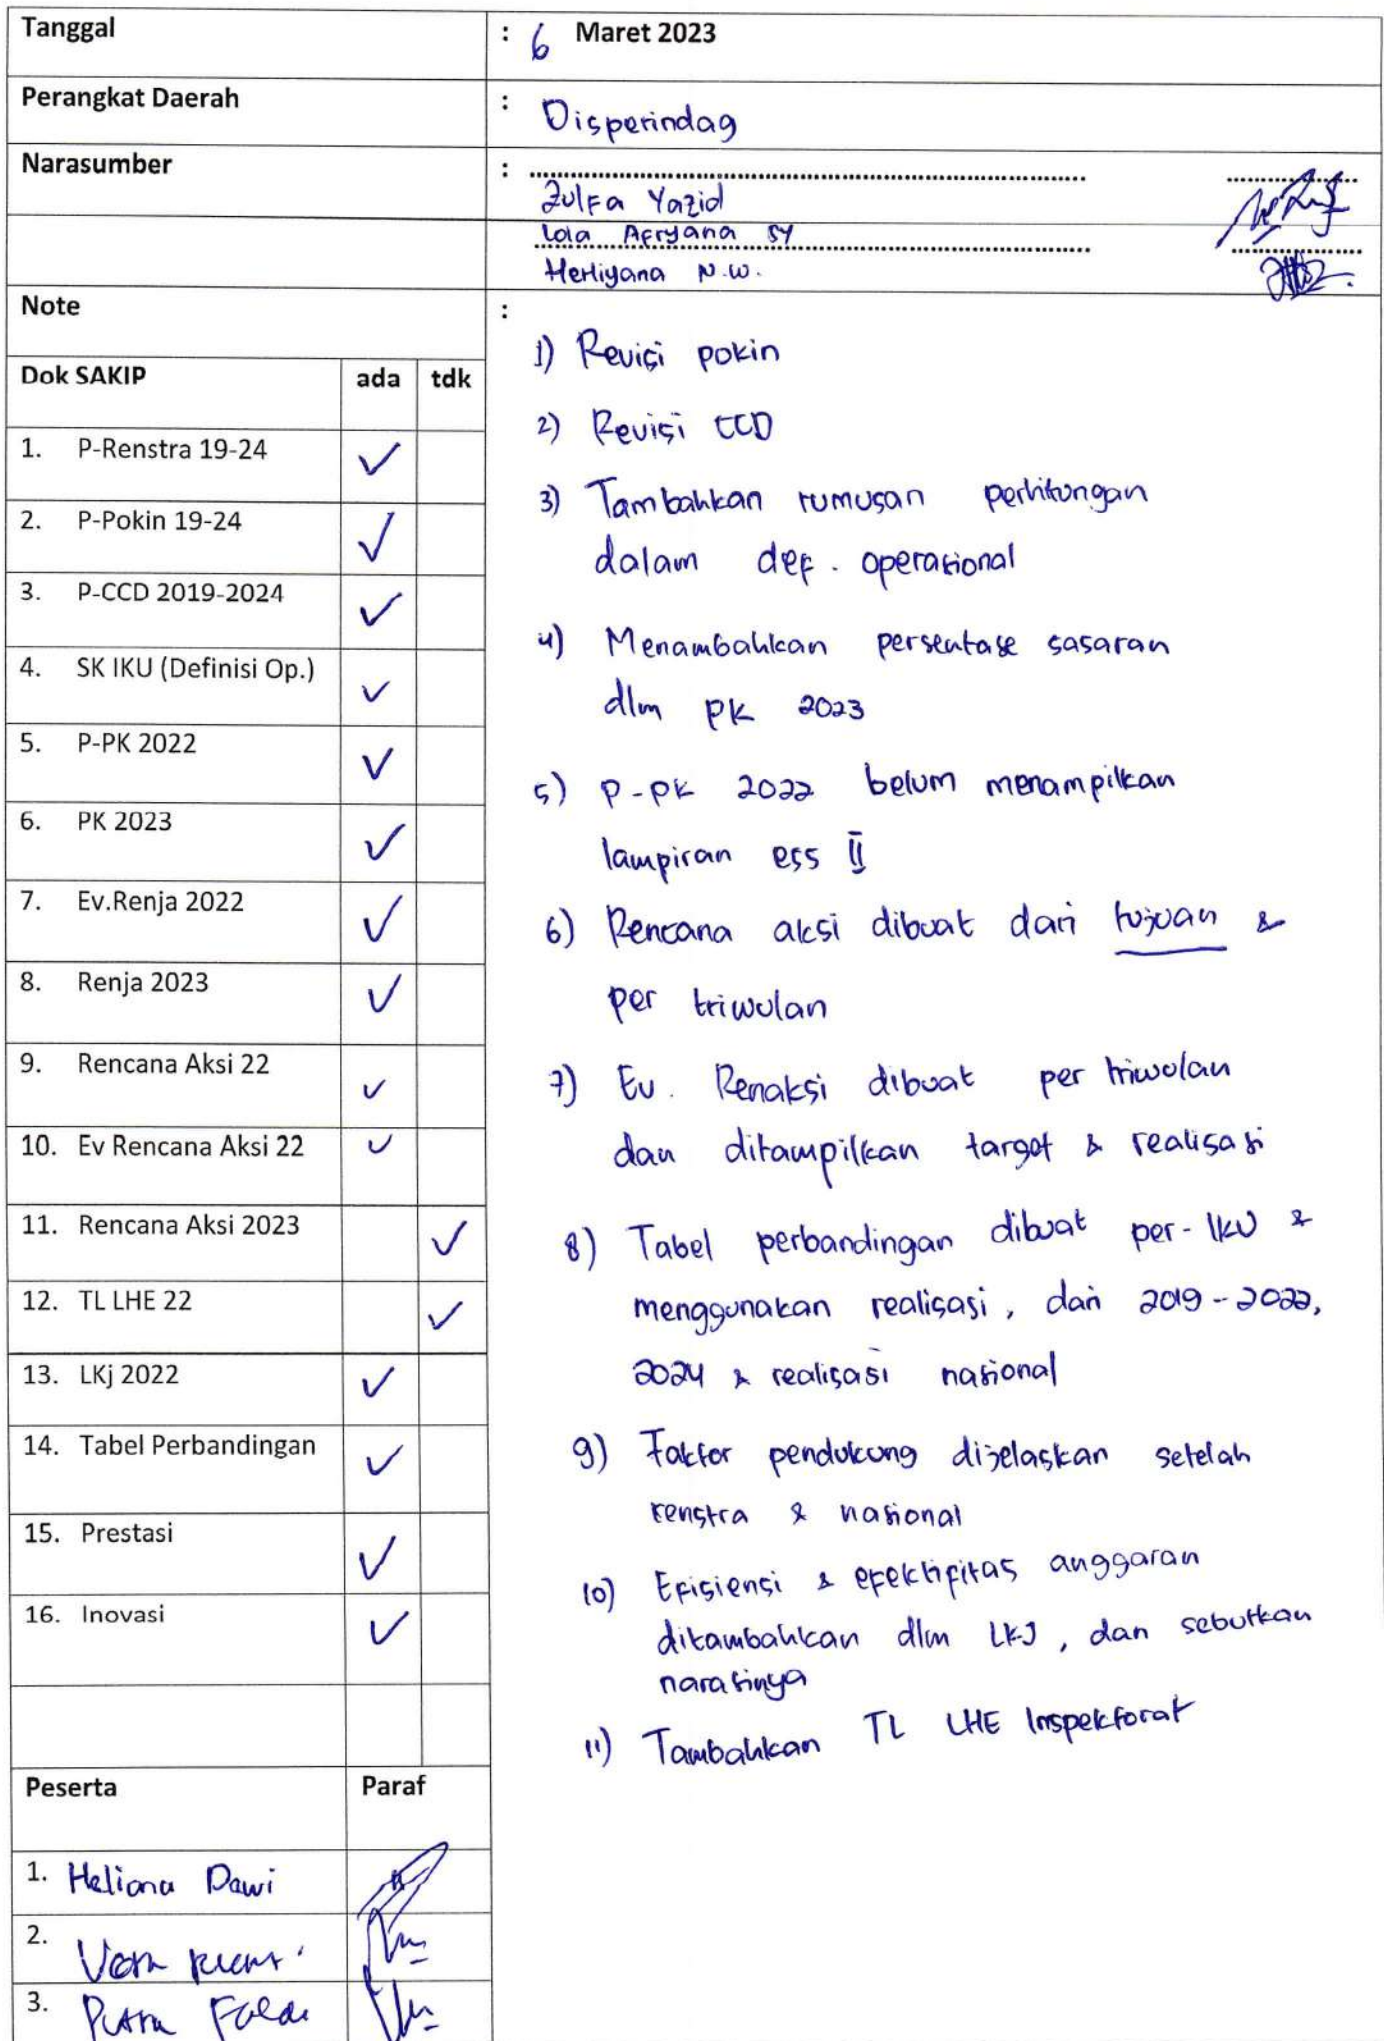 Tanggal : 6 Maret 2023
Perangkat Daerah : Disperindag
Narasumber : ....................
Zulfa Yazid
Lola Afryana SY
Herliyana N.W.
Note :
Dok SAKIP ada tdk
1. P-Renstra 19-24 ✓
2. P-Pokin 19-24 ✓
3. P-CCD 2019-2024 ✓
4. SK IKU (Definisi Op.) ✓
5. P-PK 2022 ✓
6. PK 2023 ✓
7. Ev.Renja 2022 ✓
8. Renja 2023 ✓
9. Rencana Aksi 22 ✓
10. Ev Rencana Aksi 22 ✓
11. Rencana Aksi 2023 ✓
12. TL LHE 22 ✓
13. LKj 2022 ✓
14. Tabel Perbandingan ✓
15. Prestasi ✓
16. Inovasi ✓
1) Revisi pokin
2) Revisi CCD
3) Tambahkan rumusan perhitungan
dalam def. operasional
4) Menambahkan persentase sasaran
dlm PK 2023
5) P-PK 2022 belum menampilkan
lampiran ess II
6) Rencana aksi dibuat dari tujuan &
per triwulan
7) Ev. Renaksi dibuat per triwulan
dan ditampilkan target & realisasi
8) Tabel perbandingan dibuat per-IKU &
menggunakan realisasi, dari 2019-2022,
2024 & realisasi nasional
9) Faktor pendukung dijelaskan setelah
renstra & nasional
10) Efisiensi & efektifitas anggaran
ditambahkan dlm LKJ, dan sebutkan
narasinya
11) Tambahkan TL LHE Inspektorat
Peserta Paraf
1. Heliana Dewi
2.
3. Putra